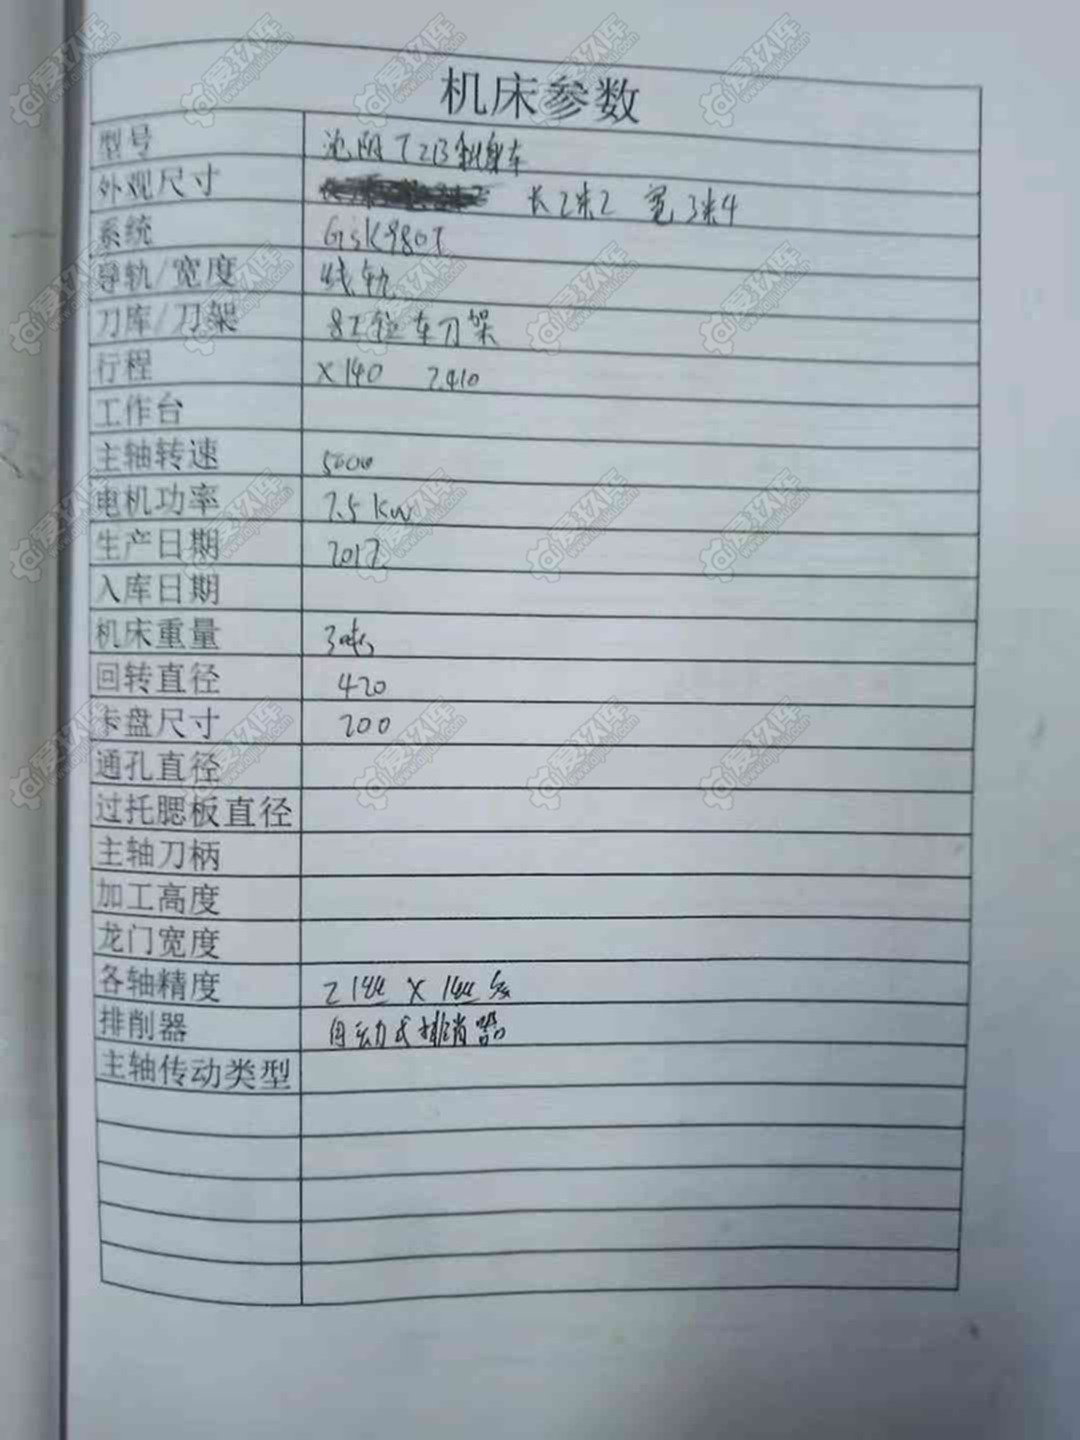 机床参数
型号 沈阳T2B斜身车
外观尺寸 长2米2 宽3米4
系统 GSK980T
导轨/宽度 线轨
刀库/刀架 8工位车刀架
行程 X140 Z410
工作台
主轴转速 5000
电机功率 7.5KW
生产日期 2017
入库日期
机床重量 3吨
回转直径 420
卡盘尺寸 200
通孔直径
过托腮板直径
主轴刀柄
加工高度
龙门宽度
各轴精度 Z1丝 X1丝
排削器 自动式排消器
主轴传动类型